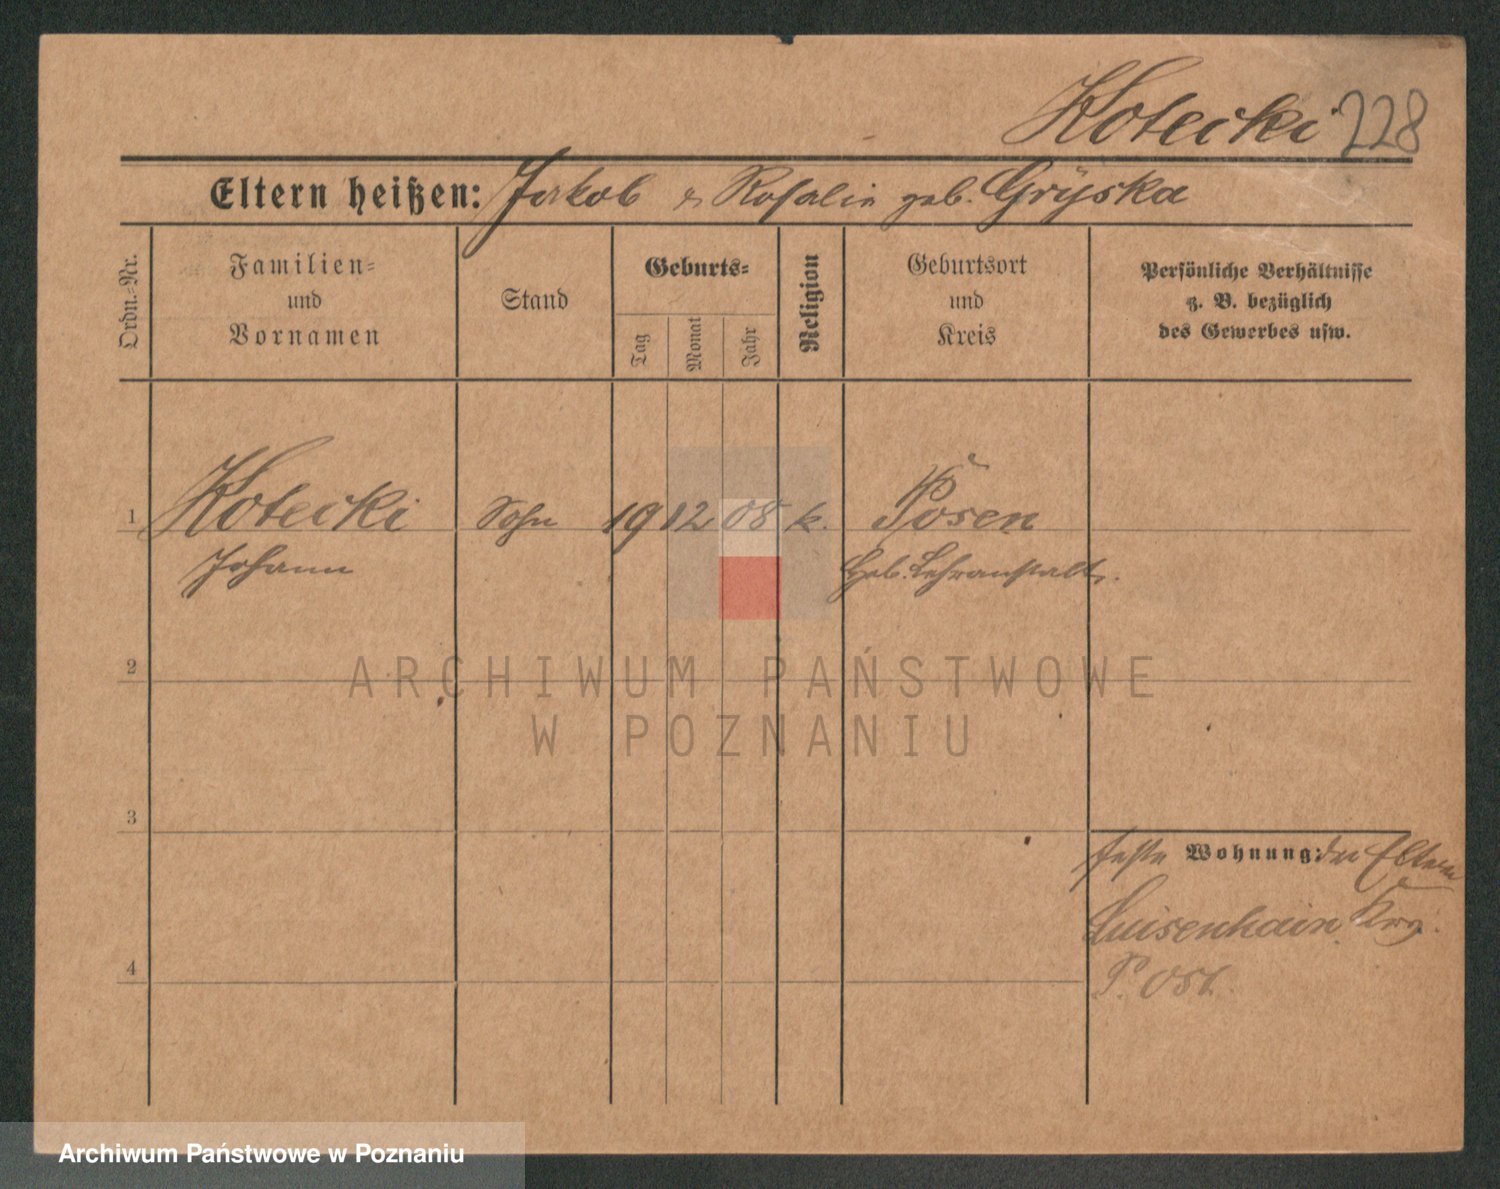 Kotecki 228
Eltern heißen: Jakob & Rosalie geb. Gryska
Ordn.-Nr.
Familien-
und
Vornamen
Stand
Geburts-
Tag
Monat
Jahr
Religion
Geburtsort
und
Kreis
Persönliche Verhältnisse
z. B. bezüglich
des Gewerbes usw.
1 Kotecki Sohn 19 12 08 k. Posen
Johann Heb. Lehranstalt.
2
ARCHIWUM PAŃSTWOWE
W POZNANIU
3
feste Wohnung: der Eltern
Luisenhain Krs.
4 P. Ost.
Archiwum Państwowe w Poznaniu